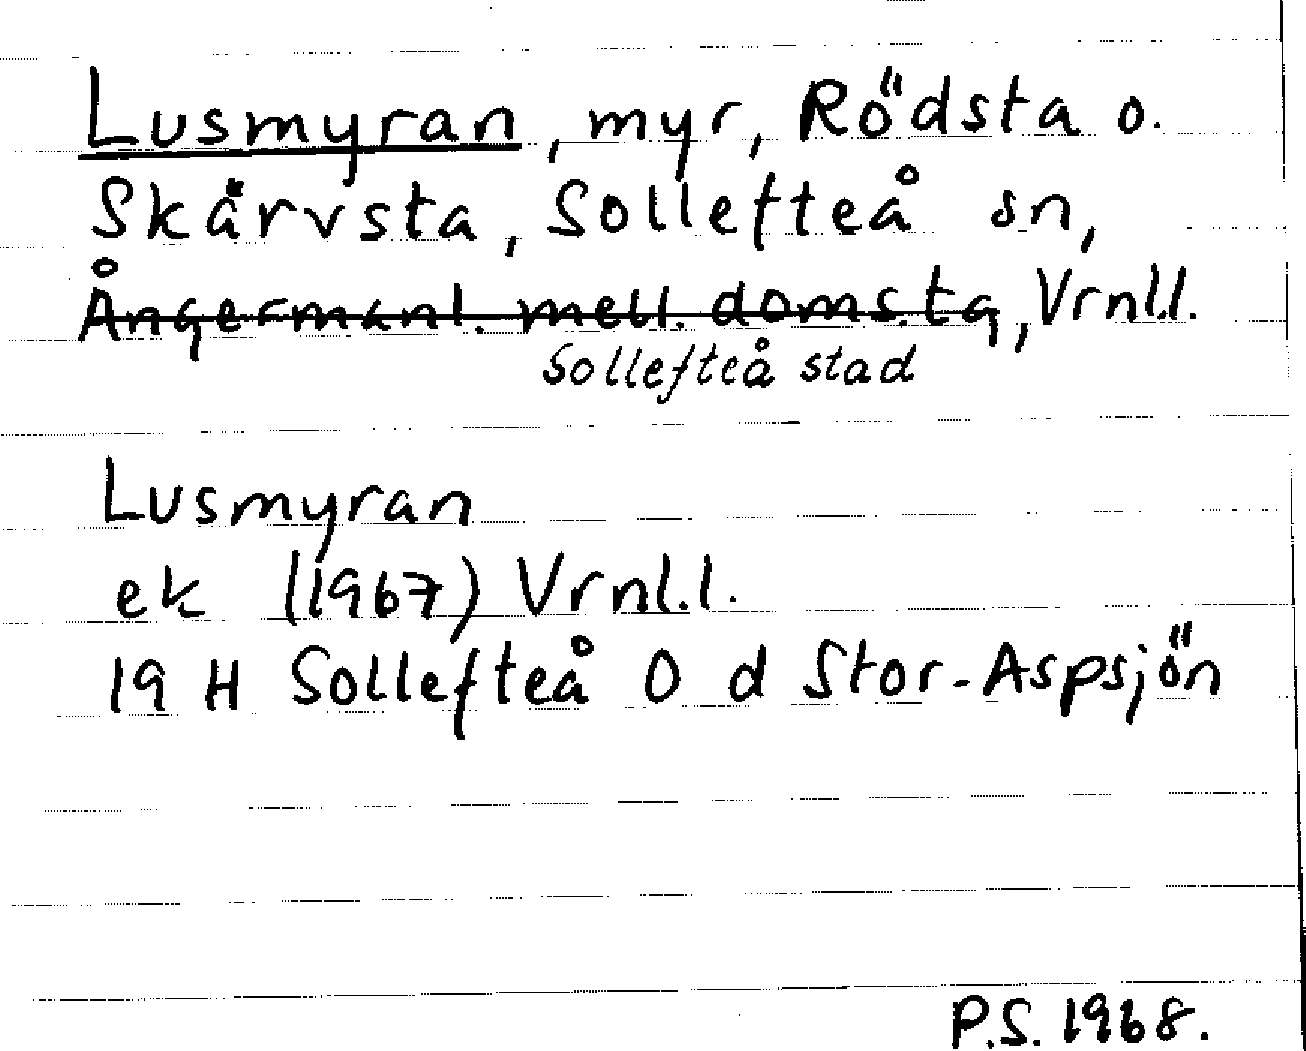 Lusmyran, myr, Rödsta o.
Skärvsta, Sollefteå sn,
Ångermanl. mell. doms.ta, Vrnl.l.
Sollefteå stad
Lusmyran
ek (1967) Vrnl.l.
19 H Sollefteå O d Stor-Aspsjön
P.S. 1968.